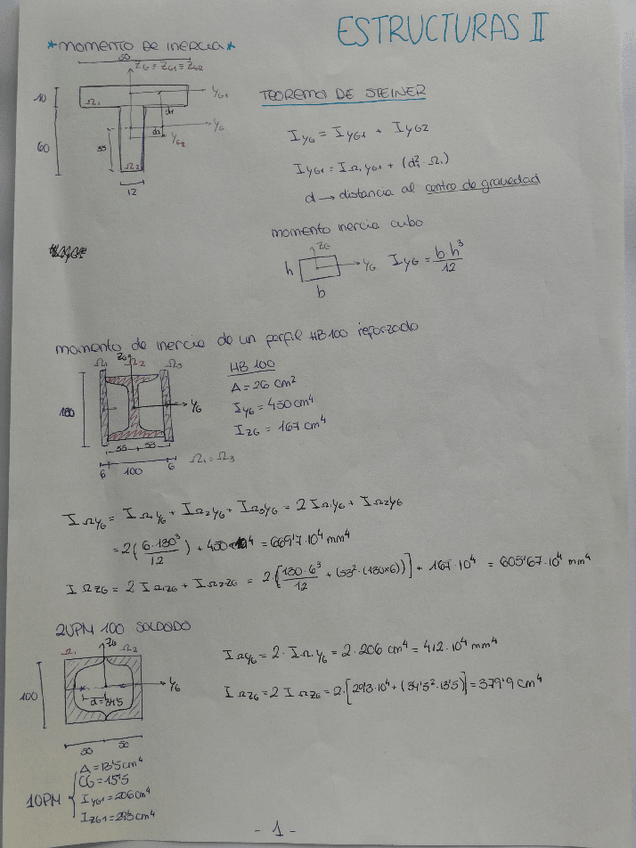 ESTRUCTURAS II
*MOMENTO DE INERCIA*
ZG = ZG1 = ZG2
10
60
Ω1
d1
YG1
YG
d2
YG2
55
Ω2
12
TEOREMA DE STEINER
IYG = IYG1 + IYG2
IYG1 = IΩ1YG1 + (d1² · Ω1)
d → distancia al centro de gravedad
momento inercia cubo
h
ZG
YG
b
IYG = b h³ / 12
momento de inercia de un perfil HB100 reforzado
Ω1 ZG Ω2 Ω3
180
YG
6 100 6
Ω1 = Ω3
HB 100
A = 26 cm²
IYG = 450 cm⁴
IZG = 167 cm⁴
IΩYG = IΩ1YG + IΩ2YG + IΩ3YG = 2 IΩ1YG + IΩ2YG
= 2(6·180³ / 12) + 450 · 10⁴ = 
IΩZG = 2 IΩ1ZG + IΩ2ZG = 2·[180·6³ / 12 + (53²·(180×6))] + 167·10⁴ = 605'67·10⁴ mm⁴
2UPN 100 SOLDADO
Ω1 ZG Ω2
100
YG
d=34'5
50 50
IΩYG = 2·IΩ1YG = 2·206 cm⁴ = 412·10⁴ mm⁴
IΩZG = 2 IΩ1ZG = 2·[29'3·10⁴ + (34'5²·13'5)] = 379'9 cm⁴
A = 13'5 cm⁴
CG = 15'5
IYG1 = 206 cm⁴
IZG1 = 29'3 cm⁴
- 1 -